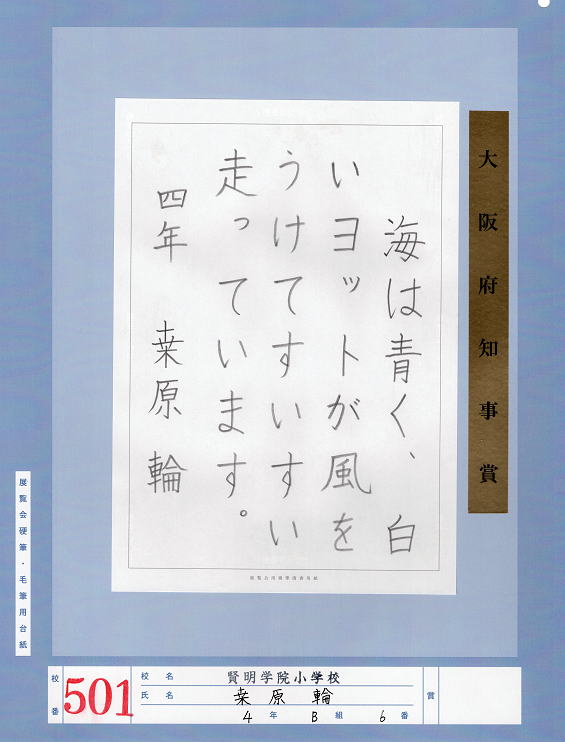 大阪府知事賞
海は青く、白
いヨットが風を
うけてすいすい
走っています。
四年 桒原 輪
展覧会用硬筆清書用紙
展覧会硬筆・毛筆用台紙
校番 501
校名 賢明学院小学校
氏名 桒原 輪
4年 B組 6番
賞